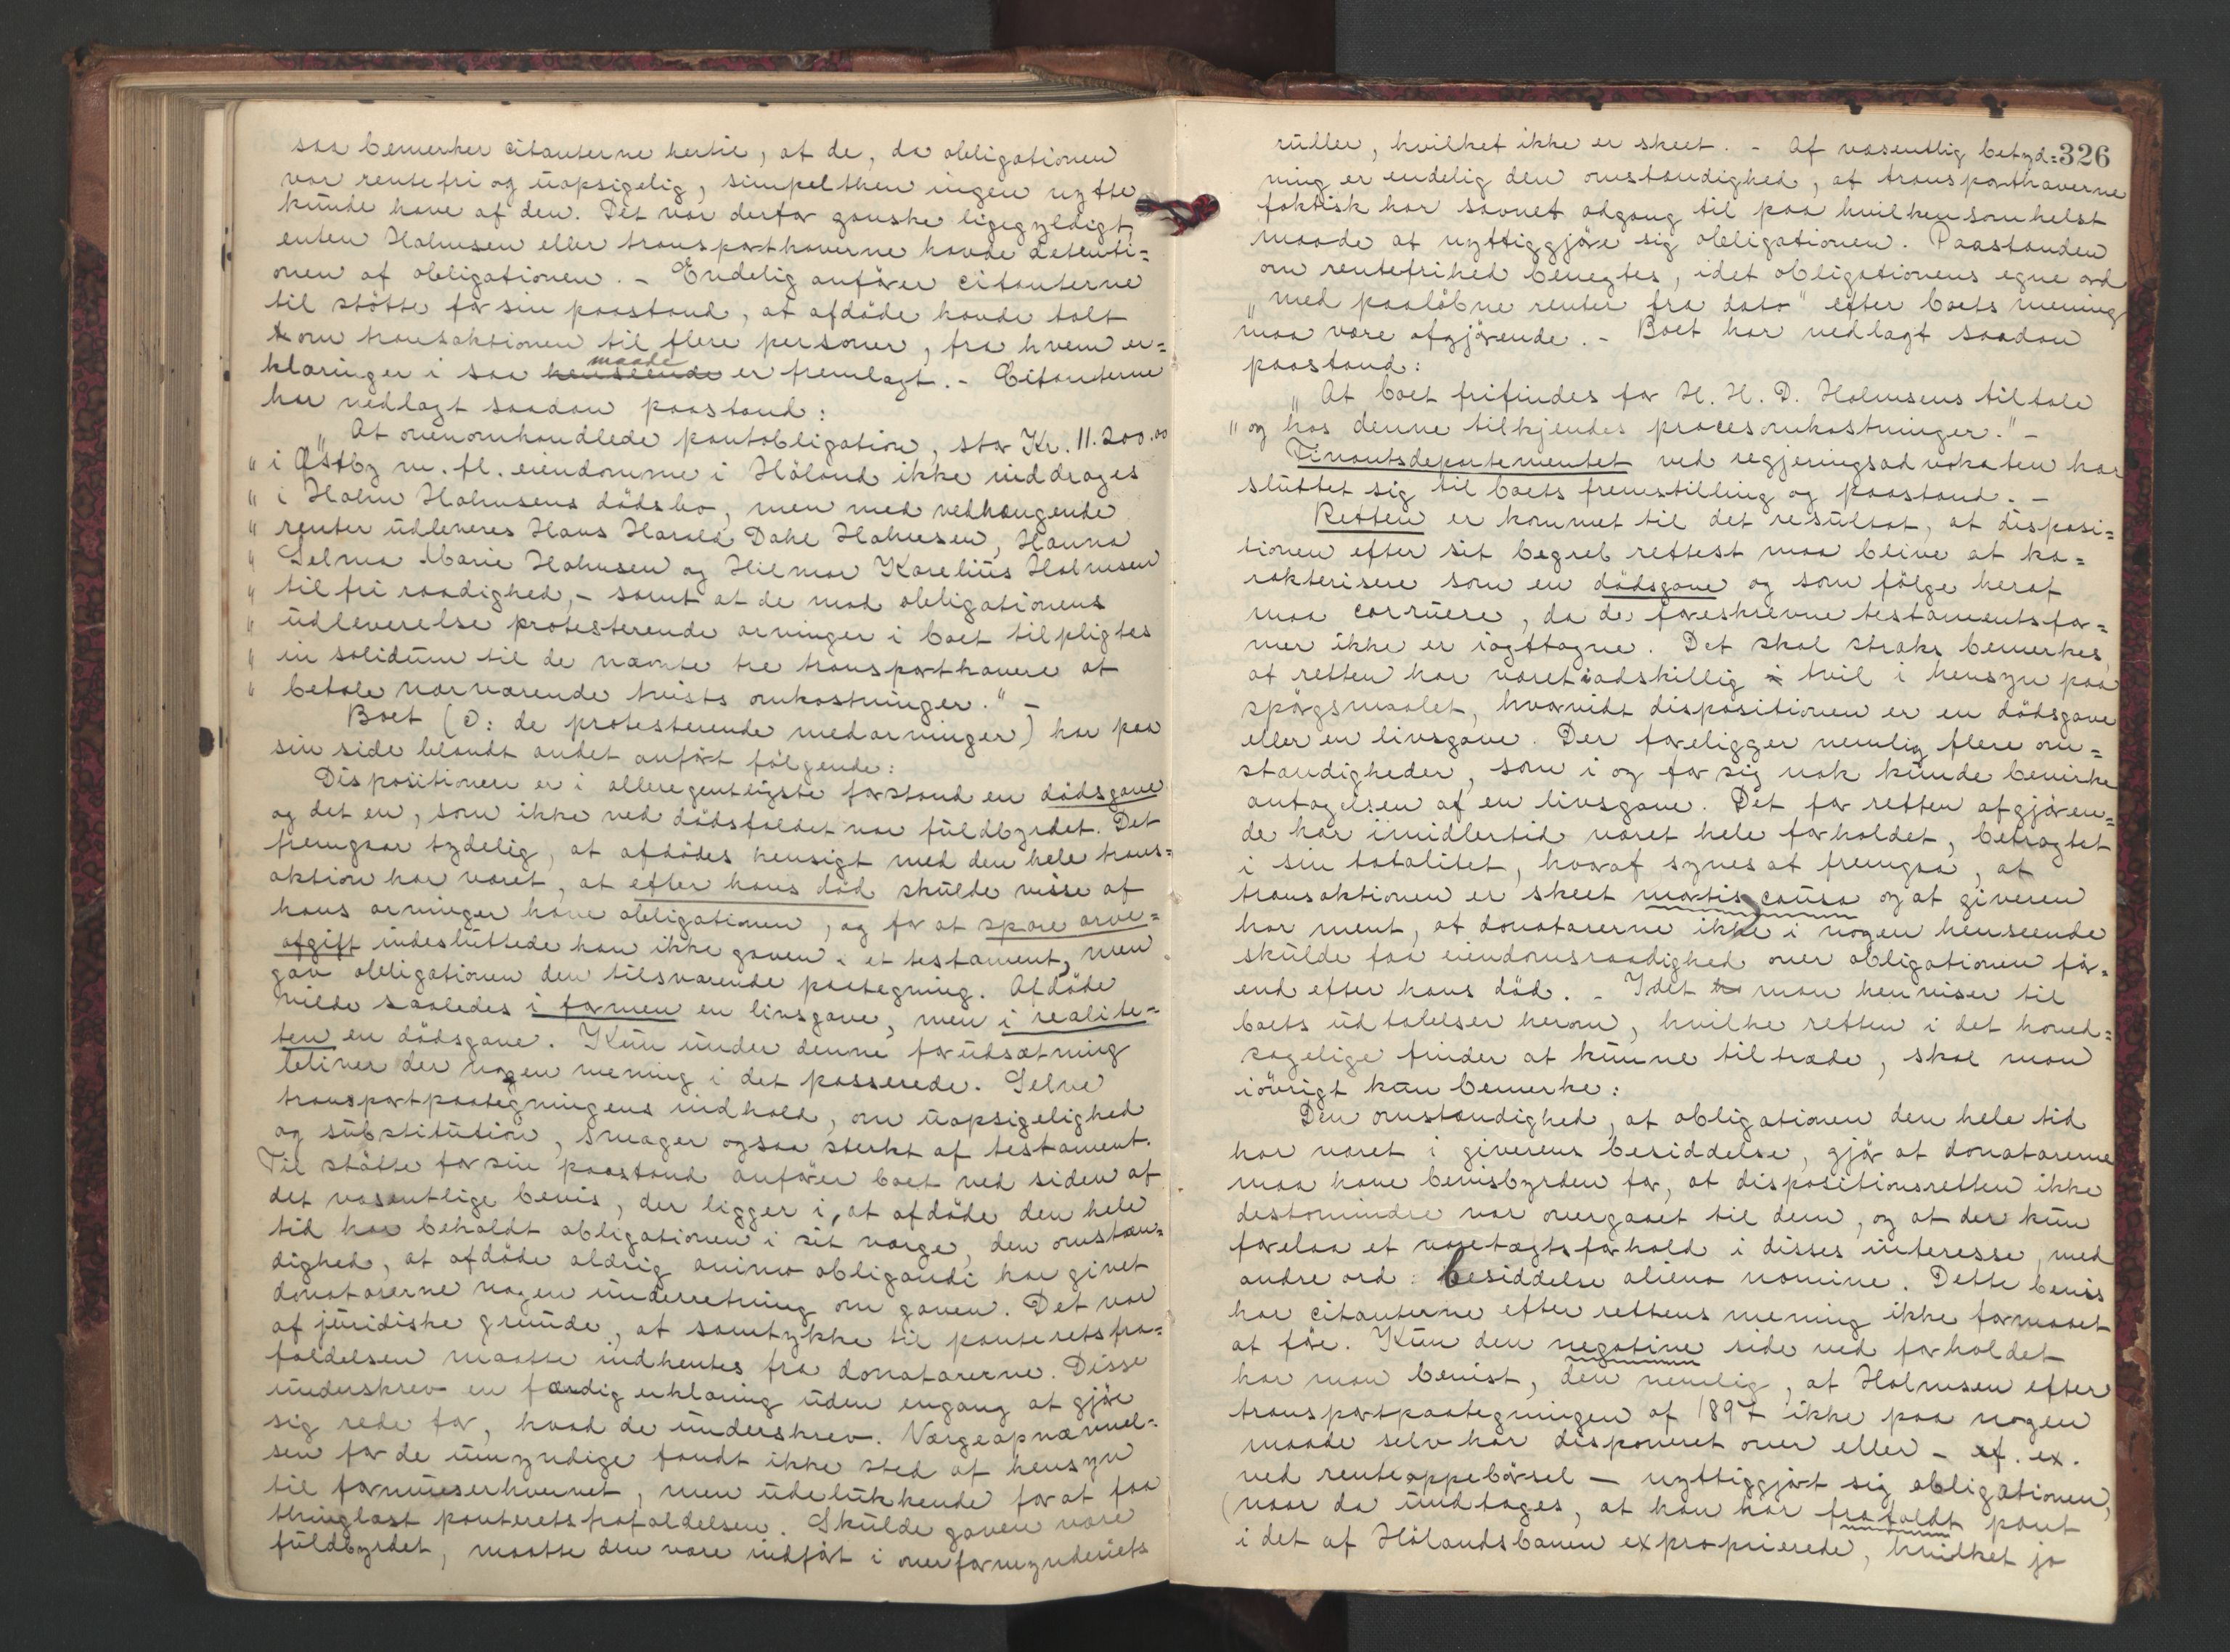 saa bemerker citanterne hertil, at de, da obligationen
var rentefri og uopsigelig, simpelthen ingen nytte
kunde have af den. Det var derfor ganske ligegyldigt,
enten Holmsen eller transporthaverne havde detenti=
onen af obligationen. – Endelig anfører citanterne
til støtte for sin paastand, at afdøde havde talt
om transaktionen til flere personer, fra hvem er=
klæringer i saa henseende maade er fremlagt. – Citanterne
har nedlagt saadan paastand:
„At ovenomhandlede pantobligation, stor Kr. 11.200.00
„ i Østby m. fl. eiendomme i Høland ikke inddrages
„ i Holm Holmsens dødsbo, men med vedhængende
„ renter udleveres Hans Harald Dahl Holmsen, Hanna
„ Selma Marie Holmsen og Hilmar Karelius Holmsen
„ til fri raadighed, – samt at de mod obligationens
„ udleverelse protesterende arvinger i boet tilpligtes
„ in solidum til de nævnte tre transporthavere at
„ betale nærværende tvists omkostninger." –
Boet (ɔ: de protesterende medarvinger) har paa
sin side blandt andet anført følgende:
Dispositionen er i alleregentligste forstand en dødsgave
og det en, som ikke ved dødsfaldet var fuldbyrdet. Det
fremgaar tydelig, at afdødes hensigt med den hele trans=
aktion har været, at efter hans død skulde visse af
hans arvinger have obligationen, og for at spare arve=
afgift indesluttede han ikke gaven i et testament, men
gav obligationen den tilsvarende paategning. Afdøde
vilde saaledes i formen en livsgave, men i realite=
ten en dødsgave. Kun under denne forudsætning
bliver der nogen mening i det passerede. Selve
transportpaategningens indhold, om uopsigelighed
og substitution, smager ogsaa sterkt af testament.
Til støtte for sin paastand anfører boet ved siden af
det væsentlige bevis, der ligger i, at afdøde den hele
tid har beholdt obligationen i sit værge, den omstæn=
dighed, at afdøde aldrig animo obligandi har givet
donatarerne nogen underretning om gaven. Det var
af juridiske grunde, at samtykke til panteretsfra=
faldelsen maatte indhentes fra donatarerne. Disse
underskrev en færdig erklæring uden engang at gjøre
sig rede for, hvad de underskrev. Værgeopnævnel=
sen for de umyndige fandt ikke sted af hensyn
til formueserhvervet, men udelukkende for at faa
thinglæst panteretsfrafaldelsen. Skulde gaven være
fuldbyrdet, maatte den være indført i overformynderiets
326
ruller, hvilket ikke er skeet. – Af væsentlig betyd=
ning er endelig den omstændighed, at transporthaverne
faktisk har savnet adgang til paa hvilkensomhelst
maade at nyttiggjøre sig obligationen. Paastanden
om rentefrihed benegtes, idet obligationens egne ord
„med paaløbne renter fra dato" efter boets mening
maa være afgjørende. – Boet har nedlagt saadan
paastand:
„At boet frifindes for H. H. D. Holmsens tiltale
„ og hos denne tilkjendes procesomkostninger." –
Finantsdepartementet ved regjeringsadvokaten har
sluttet sig til boets fremstilling og paastand. –
Retten er kommet til det resultat, at disposi=
tionen efter sit begreb rettest maa blive at ka=
rakterisere som en dødsgave og som følge heraf
maa corruere, da de foreskrevne testamentsfor=
mer ikke er iagttagne. Det skal straks bemerkes,
at retten har været i adskillig tvil i hensyn paa
spørgsmaalet, hvorvidt dispositionen er en dødsgave
eller en livsgave. Der foreligger nemlig flere om=
standigheder, som i og for sig nok kunde bevirke
antagelsen af en livsgave. Det for retten afgjøren=
de har imidlertid været hele forholdet, betragtet
i sin totalitet, hvoraf synes at fremgaa, at
transaktionen er skeet mortis causa og at giveren
har ment, at donatarerne ikke i nogen henseende
skulde faa eiendomsraadighed over obligationen før=
end efter hans død. – Idet man henviser til
boets udtalelser herom, hvilke retten i det hoved=
sagelige finder at kunne tiltræde, skal man
iøvrigt kun bemerke:
Den omstændighed, at obligationen den hele tid
har været i giverens besiddelse, gjør at donatarerne
maa have bevisbyrden for, at dispositionsretten ikke
destomindre var overgaaet til dem, og at der kun
forelaa et varetægtsforhold i disses interesse, med
andre ord: besiddelse alieno nomine. Dette bevis
har citanterne efter rettens mening ikke formaaet
at føre. Kun den negative side ved forholdet
har man bevist, den nemlig, at Holmsen efter
transportpaategningen af 1897 ikke paa nogen
maade selv har disponeret over eller – f. ex.
ved renteoppebørsel – nyttiggjort sig obligationen,
(naar da undtages, at han har frafaldt pant
i det af Hølandsbanen exproprierede, hvilket jo